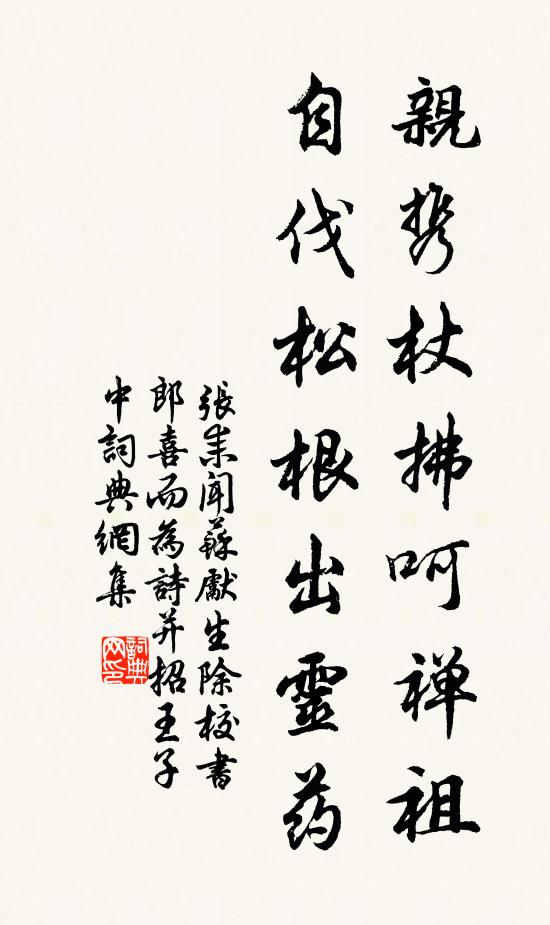 親携杖拂呵禅祖
自伐松根出靈药
張耒聞蘇獻生除校書
郎喜而為詩并招王子
中詞典網集
詞典
网印